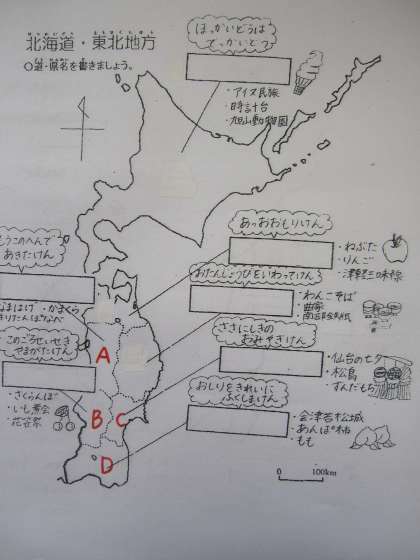 北海道・東北地方
○道・県名を書きましょう。
ほっかいどうは
でっかいどう
・アイヌ民族
・時計台
・旭山動物園
あっおおもりけん
・ねぶた
・りんご
・津軽三味線
あきたけん
なまはげ・かまくら
きりたんぽなべ
おたんじょうびをいわってけん
・わんこそば
このごうせいせき
やまがたけん
・さくらんぼ
・いも煮会
・花笠祭
ささにしきの
おみやぎけん
・仙台の七夕
・松島
・ずんだもち
おしりをきれいに
ふくしまけん
・会津若松城
・あんぽ柿
・もも
A
B
C
D
0
100km